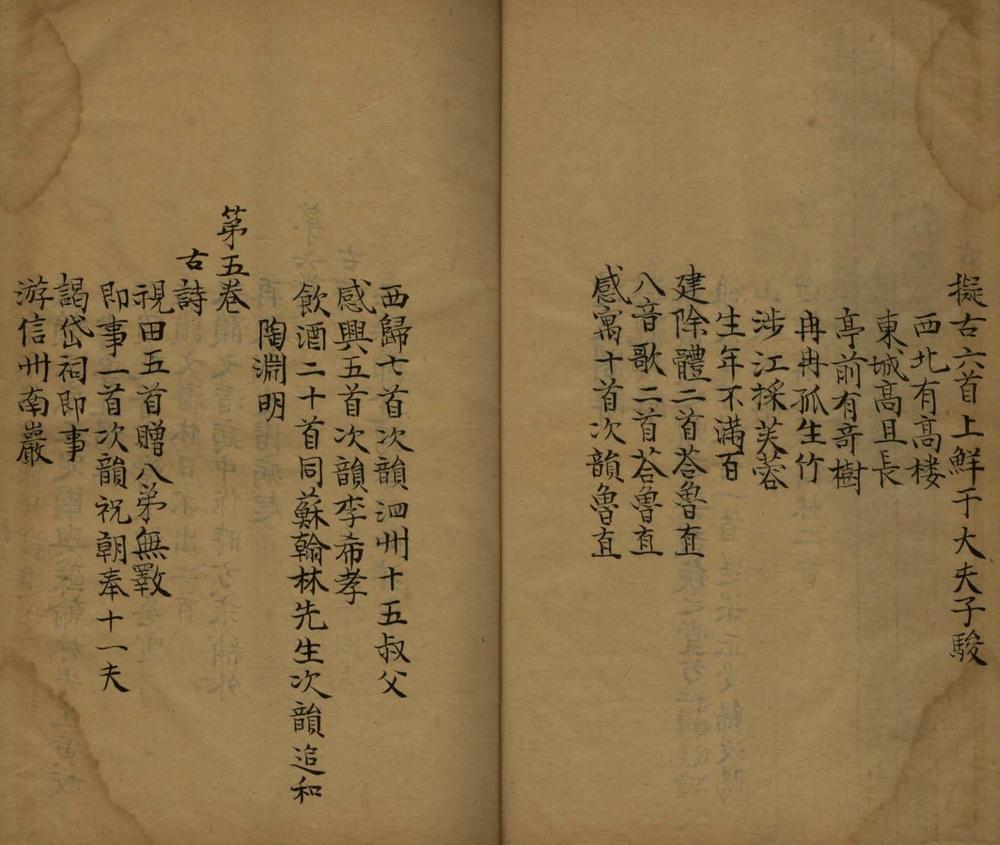 擬古六首上鮮于大夫子駿
西北有高楼
東城高且長
亭前有竒樹
冉冉孤生竹
涉江採芙蓉
生年不滿百
建除體二首荅魯直
八音歌二首荅魯直
感寓十首次韻魯直
西歸七首次韻泗州十五叔父
感興五首次韻李希孝
飲酒二十首同蘇翰林先生次韻追和
陶淵明
第五卷
古詩
視田五首贈八弟無斁
即事一首次韻祝朝奉十一夫
謁岱祠即事
游信州南巖